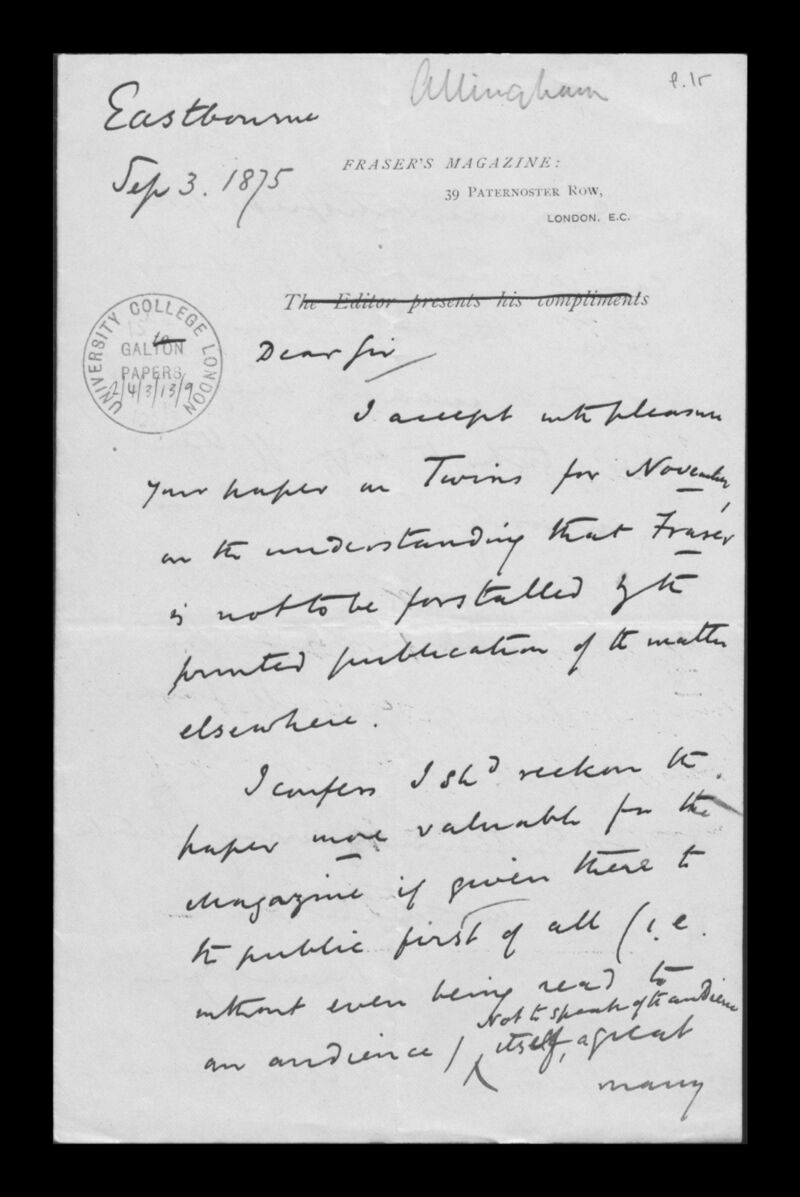 Allingham
p. 15
Eastbourne
Sep 3. 1875
FRASER'S MAGAZINE:
39 PATERNOSTER ROW,
LONDON, E.C.
The Editor presents his compliments
to
UNIVERSITY COLLEGE LONDON
GALTON
PAPERS
2/4/3/13/9
Dear Sir
I accept with pleasure
your paper on Twins for November,
on the understanding that Fraser
is not to be forstalled by the
printed publication of the matter
elsewhere.
I confess I shd reckon the
paper more valuable for the
Magazine if given there to
the public first of all (i.e.
without even being read to
an audience) Not to speak of the audience
itself, a great
many